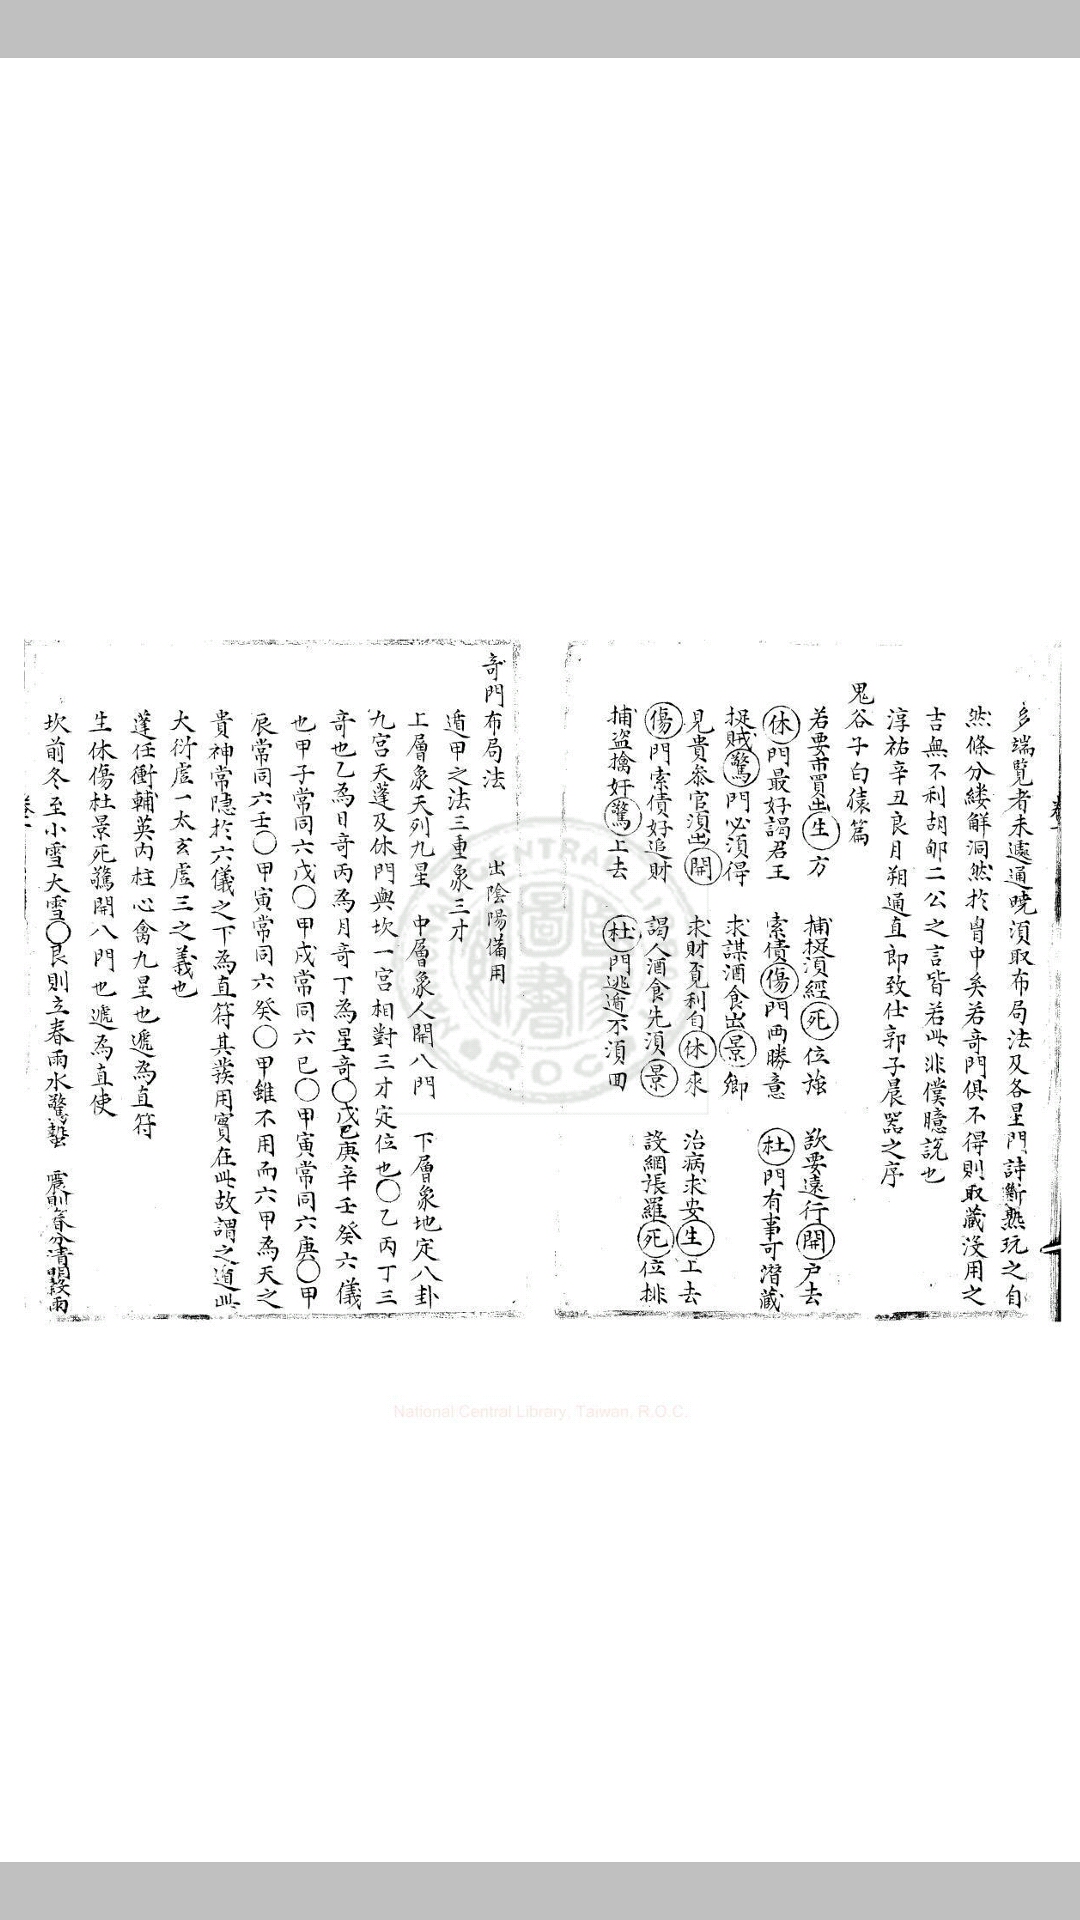 多端覽者未遽通曉湏取布局法及各星門詩斷熟玩之自
然條分縷觧洞然於胷中矣若奇門俱不得則取蔵沒用之
吉無不利胡鄉二公之言皆若此非僕臆說也
淳祐辛丑良月朔通直郎致仕郭子晟噐之序
鬼谷子白猿篇
若要市買出生方 捕捉湏經死位強 欲要遠行開户去
休門最好謁君王 索債傷門両勝意 杜門有事可潛蔵
捉賊驚門必湏得 求謀酒食出景鄉
見貴叅官湏出開 求財覓利自休來 治病求安生上去
傷門索債好追財 謁人酒食先湏景 設綱張羅死位排
捕盗擒奸驚上去 杜門逃遁不湏回
奇門布局法 出陰陽備用
遁甲之法三重象三才
上層象天列九星 中層象人開八門 下層象地定八卦
九宫天蓬及休門與坎一宫相對三才定位也〇乙丙丁三
奇也乙為日奇丙為月奇丁為星奇〇戊己庚辛壬癸六儀
也甲子常同六戊〇甲戌常同六巳〇甲寅常同六庚〇甲
辰常同六壬〇甲寅常同六癸〇甲雖不用而六甲為天之
貴神常隱於六儀之下為直符其發用實在此故謂之遁此
大衍虛一太玄虛三之義也
蓬任衝輔英内柱心禽九星也遞為直符
生休傷杜景死驚開八門也遞為直使
坎前冬至小雪大雪〇艮則立春雨水驚蟄 震前春分清明穀雨
National Central Library, Taiwan, R.O.C.